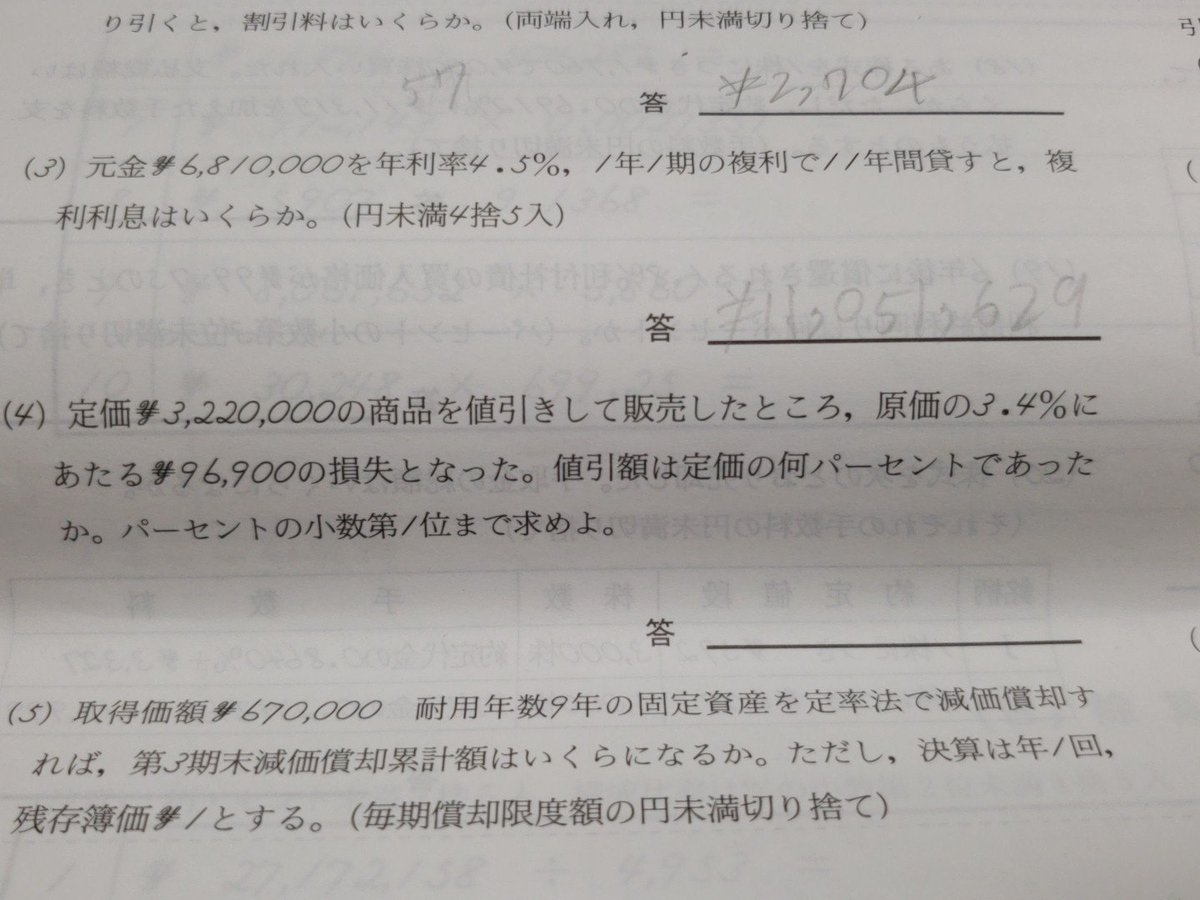 り引くと，割引料はいくらか。（両端入れ，円未満切り捨て）
57
答 ¥2,704
(3) 元金¥6,810,000を年利率4.5%，1年1期の複利で11年間貸すと，複
利利息はいくらか。（円未満4捨5入）
答 ¥11,051,629
(4) 定価¥3,220,000の商品を値引きして販売したところ，原価の3.4%に
あたる¥96,900の損失となった。値引額は定価の何パーセントであった
か。パーセントの小数第1位まで求めよ。
答
(5) 取得価額¥670,000 耐用年数9年の固定資産を定率法で減価償却す
れば，第3期末減価償却累計額はいくらになるか。ただし，決算は年1回，
残存簿価¥1とする。（毎期償却限度額の円未満切り捨て）